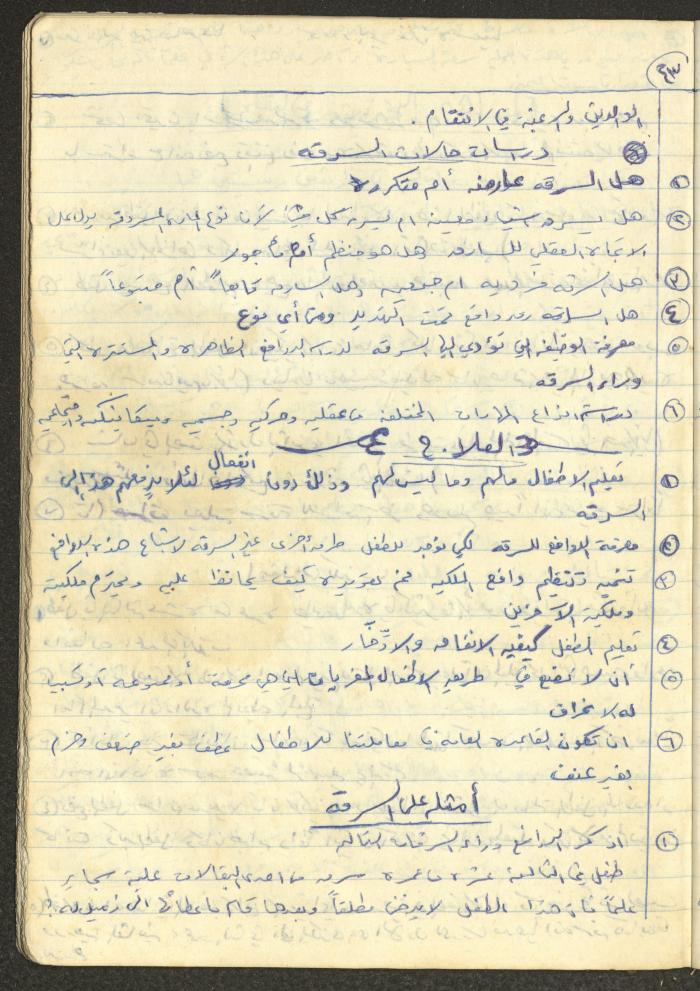 ٤٣
الوالدين والرغبة في الانتقام .
دراسات حالات السرقه
١ هل السرقه عارضه أم متكرره
٢ هل يسرق اشياء معينه ام يسرق كل شيئ لأن نوع الماده المسروقه يدل على
الاتجاه العقلي للسارق وهل هو منظم أم مأجور
٣ هل السرقه فرديه ام جمعيه وهل السارق تابعاً أم متبوعاً
٤ هل السلاقه دافع تحت التهديد ومن أي نوع
٥ معرفة الوظيفه التي تؤدي اليها السرقه لدراسه الدوافع الظاهره والمستتره التي
وراء السرقه
٦ دراسة انواع الملابسات المختلفه من عقليه وحركيه وجسميه وميكانيكيه واجتماعيه
العلاج
١ تعليم الاطفال مالهم وما ليس لهم وذلك دون انفعال لئلا يدفعهم هذا الى
السرقه
٢ معرفة الدوافع للسرقه لكي نوجد للطفل طرق أخرى غير السرقه لاشباع هذه الدوافع
٣ تنميه وتنظيم دافع الملكيه ثم تعويده كيف يحافظ عليها ويحترم ملكيته
وملكية الآخرين
٤ تعليم الطفل كيفيه الانفاق والادّخار
٥ أن لا نضع في طريق الاطفال المغريات التي هي محرمه أو ممنوعه أو مسببة
له الانحراف
٦ ان تكون القاعده العامه في معاملتنا للاطفال عطف بغير ضعف وحزم
بغير عنف
أمثله على السرقه
١ اذكر الدوافع وراء السرقات التاليه
طفل في الثالثة عشره من عمره سرق من احدى البقالات علبة سجاير
علماً بان هذا الطفل لا يدخن مطلقاً وبعدها قام باعطائها الى زميل له